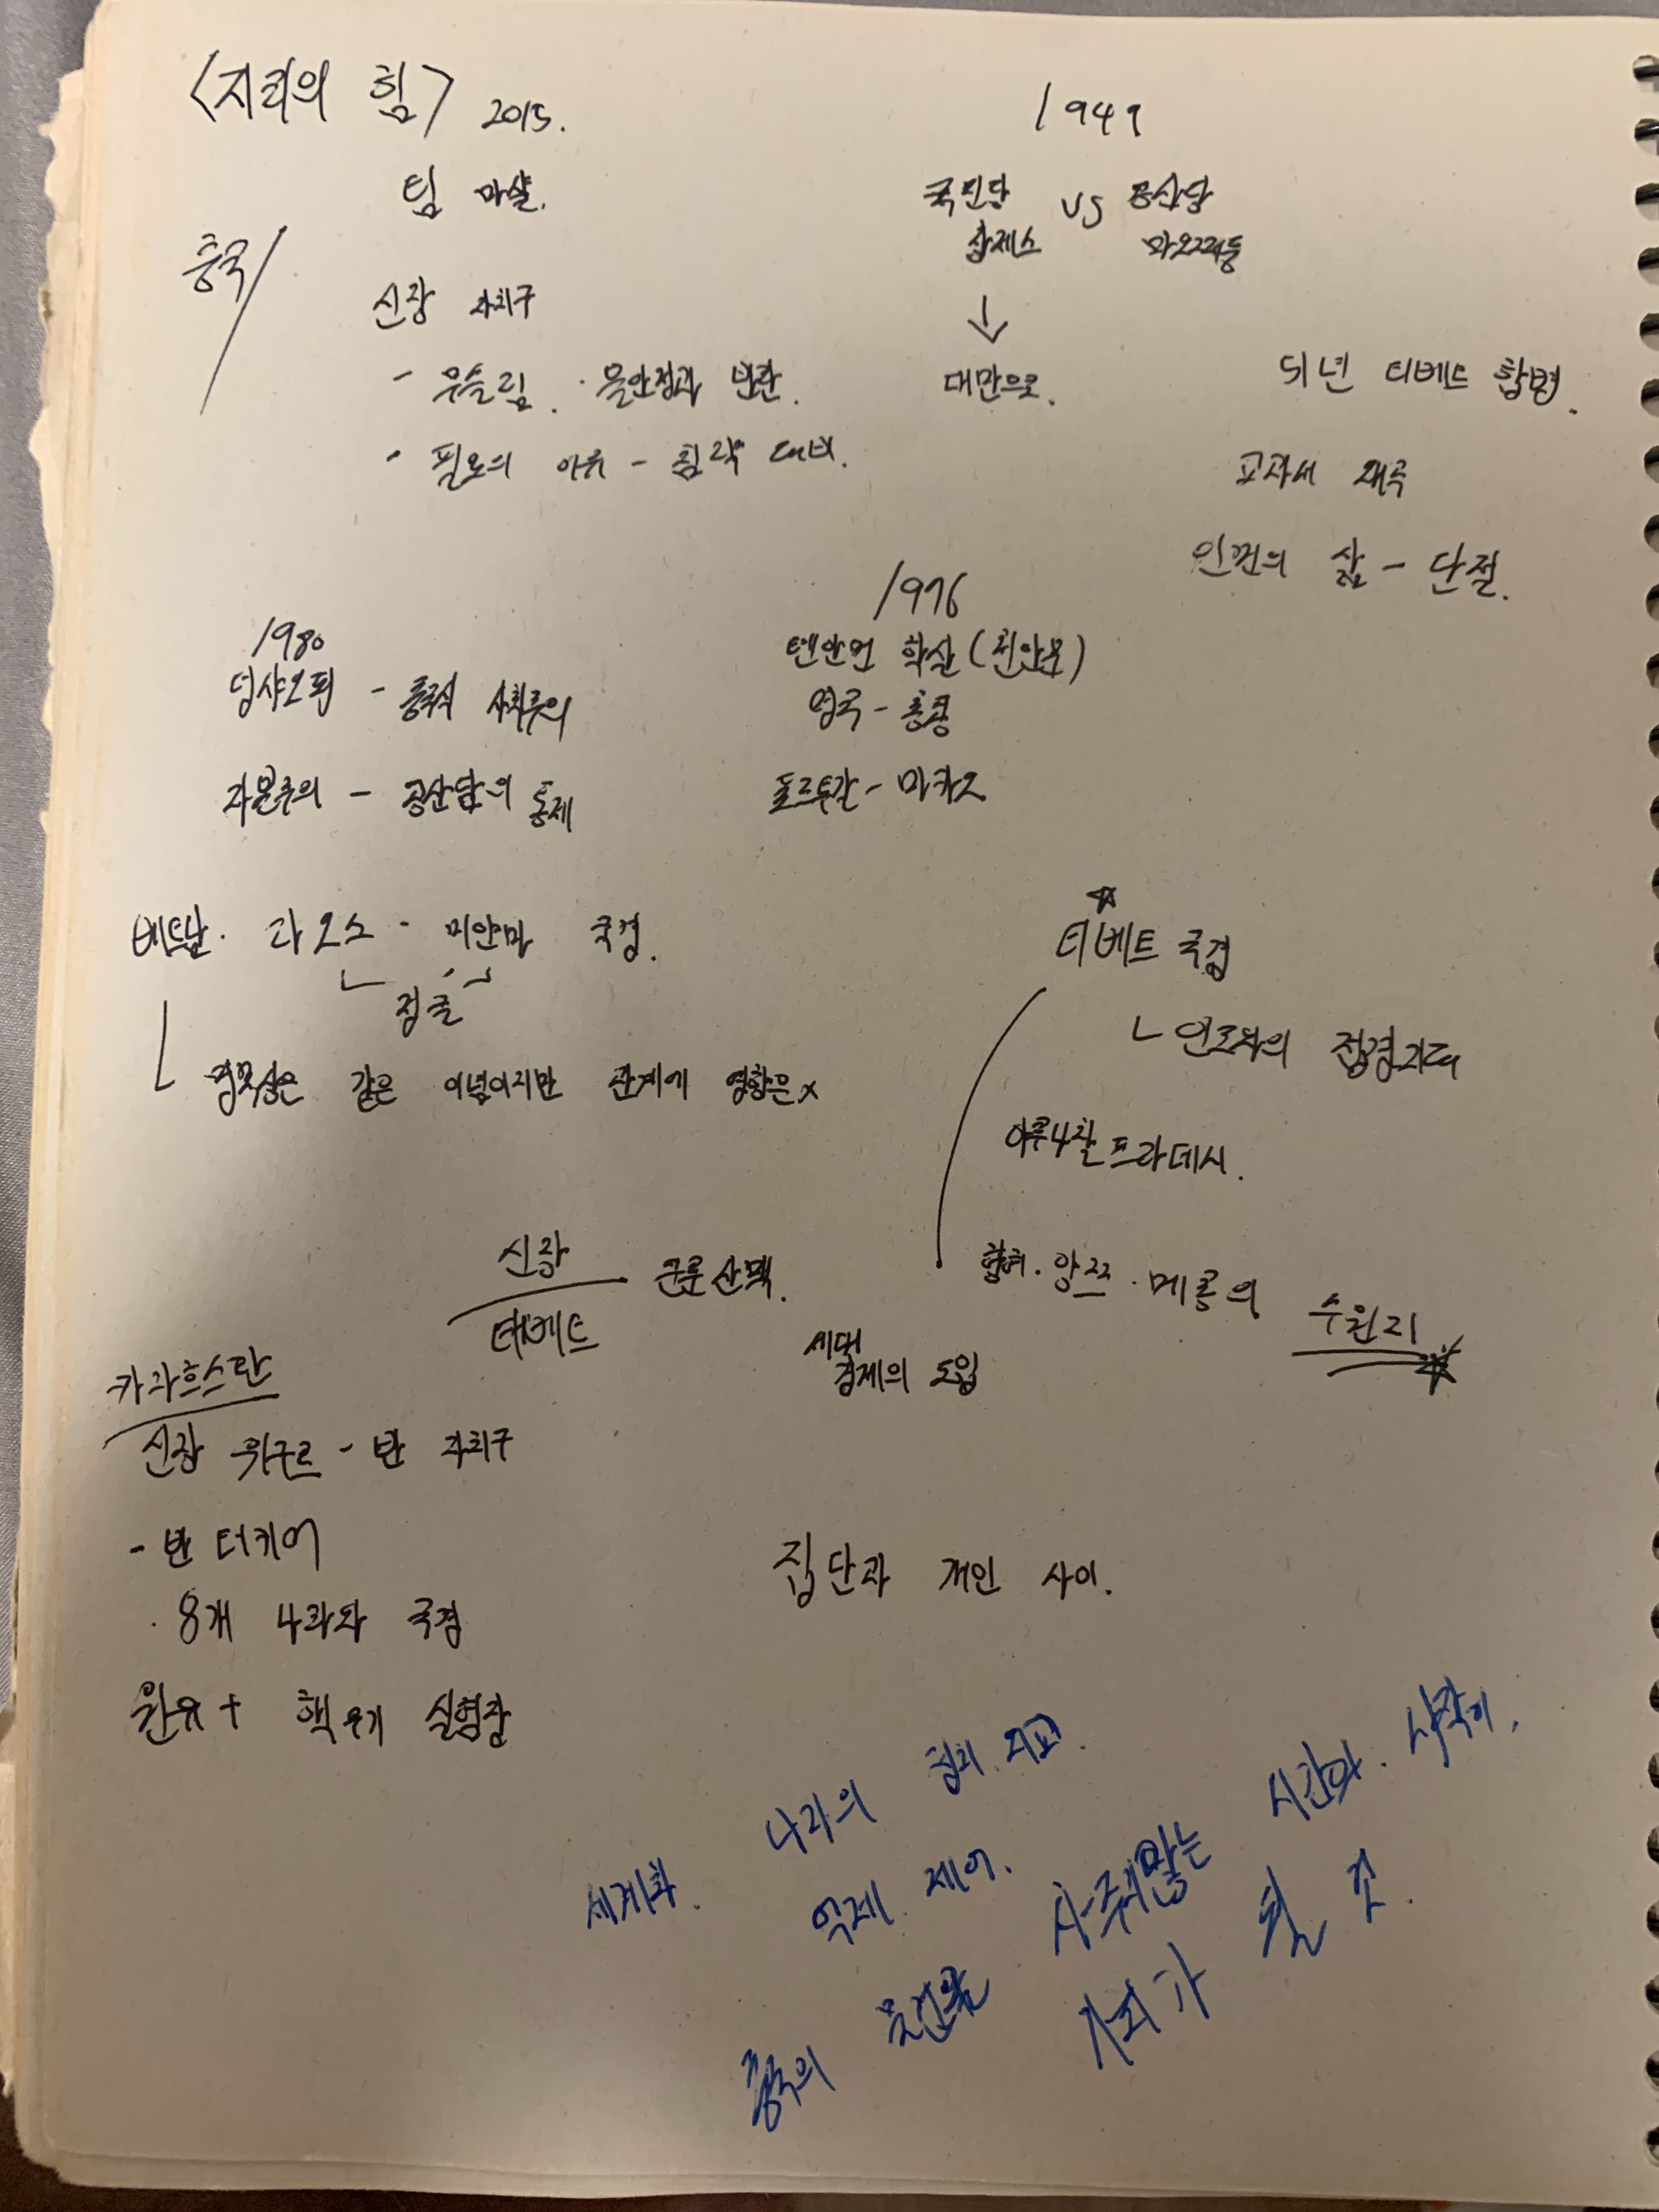 <지리의 힘> 2015.
팀 마샬.
중국/
신장 자치구
- 무슬림. · 불안정과 반란.
· 필요의 이유 - 침략 대비.
1949
국민당 vs 공산당
장제스 마오쩌둥
↓
대만으로.
51년 티베트 합병.
교과서 왜곡
인껀의 삶 - 단절.
1980
덩샤오핑 - 중국식 사회주의
자본주의 - 공산당의 통제
1976
텐안먼 학살 (천안문)
영국 - 홍콩
포르투갈 - 마카오
베트남. 라오스 · 미얀마 국경.
정글
명목상은 같은 이념이지만 관계에 영향은 x
☆
티베트 국경
ㄴ 인도와의 접경지대
아루나찰 프라데시.
황허. 양쯔. 메콩의 수원지
신장
티베트
쿤룬 산맥.
세대
경제의 도입
카자흐스탄
신장 위구르 - 반 자치구
- 반 터키어
· 8개 나라와 국경
원유 + 핵무기 실험장
집단과 개인 사이.
세계화. 나라의 정치. 외교.
억제. 제어.
시간와. 시작이.
중국의 물건을
사회가 될 것.